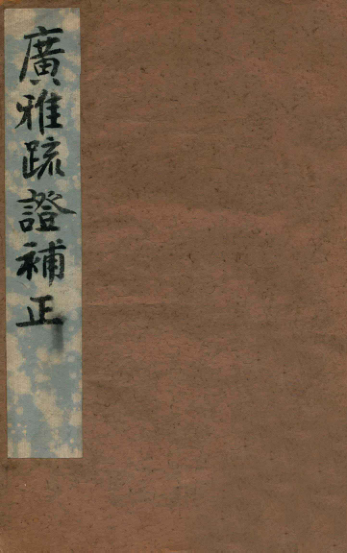 廣雅疏證補正